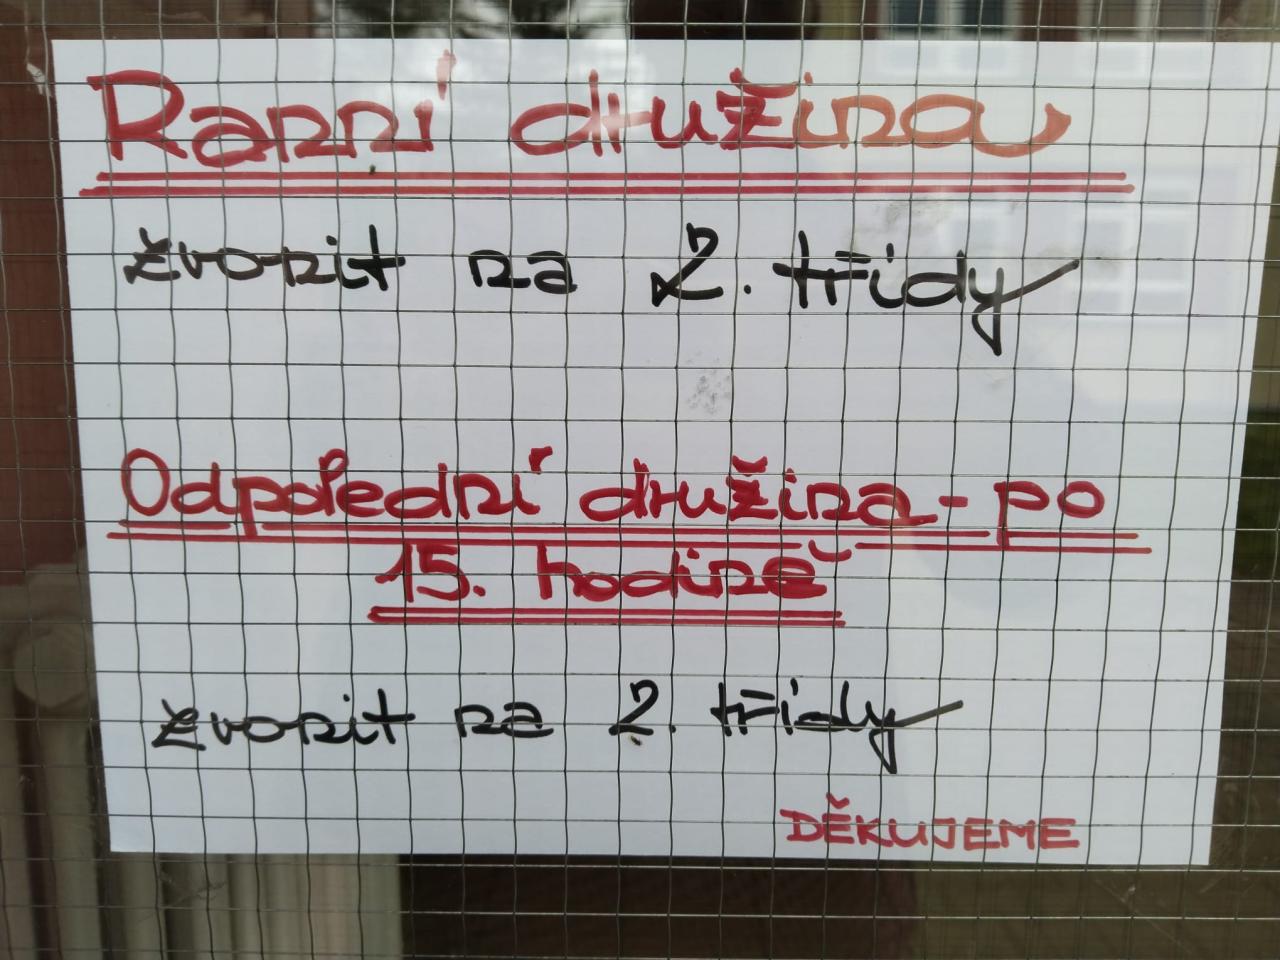 Ranní družina
zvonit na 2. třídy
Odpolední družina - po
15. hodině
zvonit na 2. třídy
DĚKUJEME